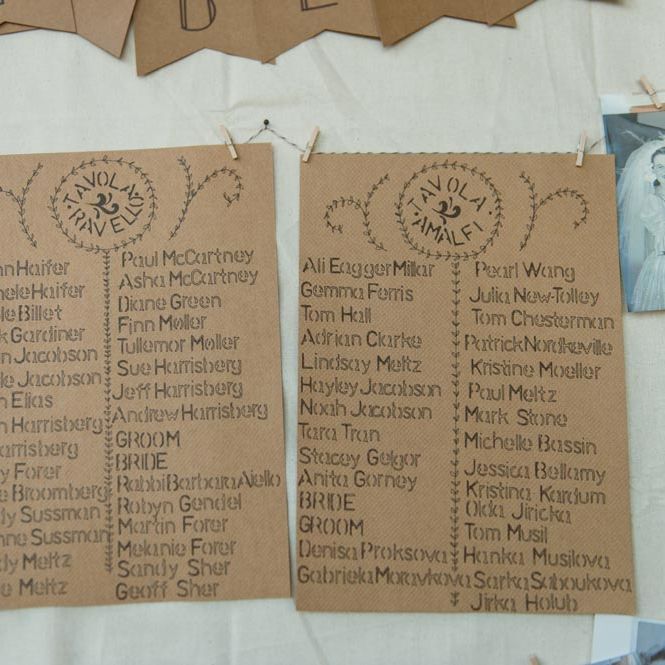 B E
TAVOLA
RAVELLO
Haifer
Haifer
Billet
Gardiner
Jacobson
Jacobson
Elias
Harrisberg
Harrisberg
Forer
Broomberg
Sussman
Sussman
Meltz
Meltz
Paul McCartney
Asha McCartney
Diane Green
Finn Moller
Tullemor Moller
Sue Harrisberg
Jeff Harrisberg
Andrew Harrisberg
GROOM
BRIDE
Rabbi Barbara Aiello
Robyn Gendel
Martin Forer
Melanie Forer
Sandy Sher
Geoff Sher
TAVOLA
AMALFI
Ali Eagger Millar
Gemma Ferris
Tom Hall
Adrian Clarke
Lindsay Meltz
Hayley Jacobson
Noah Jacobson
Tara Tran
Stacey Gelgor
Anita Gorney
BRIDE
GROOM
Denisa Proksova
Gabriela Moravkova
Pearl Wang
Julia New-Tolley
Tom Chesterman
Patrick Nordkeville
Kristine Moeller
Paul Meltz
Mark Stone
Michelle Bassin
Jessica Bellamy
Kristina Kardum
Olda Jiricka
Tom Musil
Hanka Musilova
Sarka Saboukova
Jirka Holub